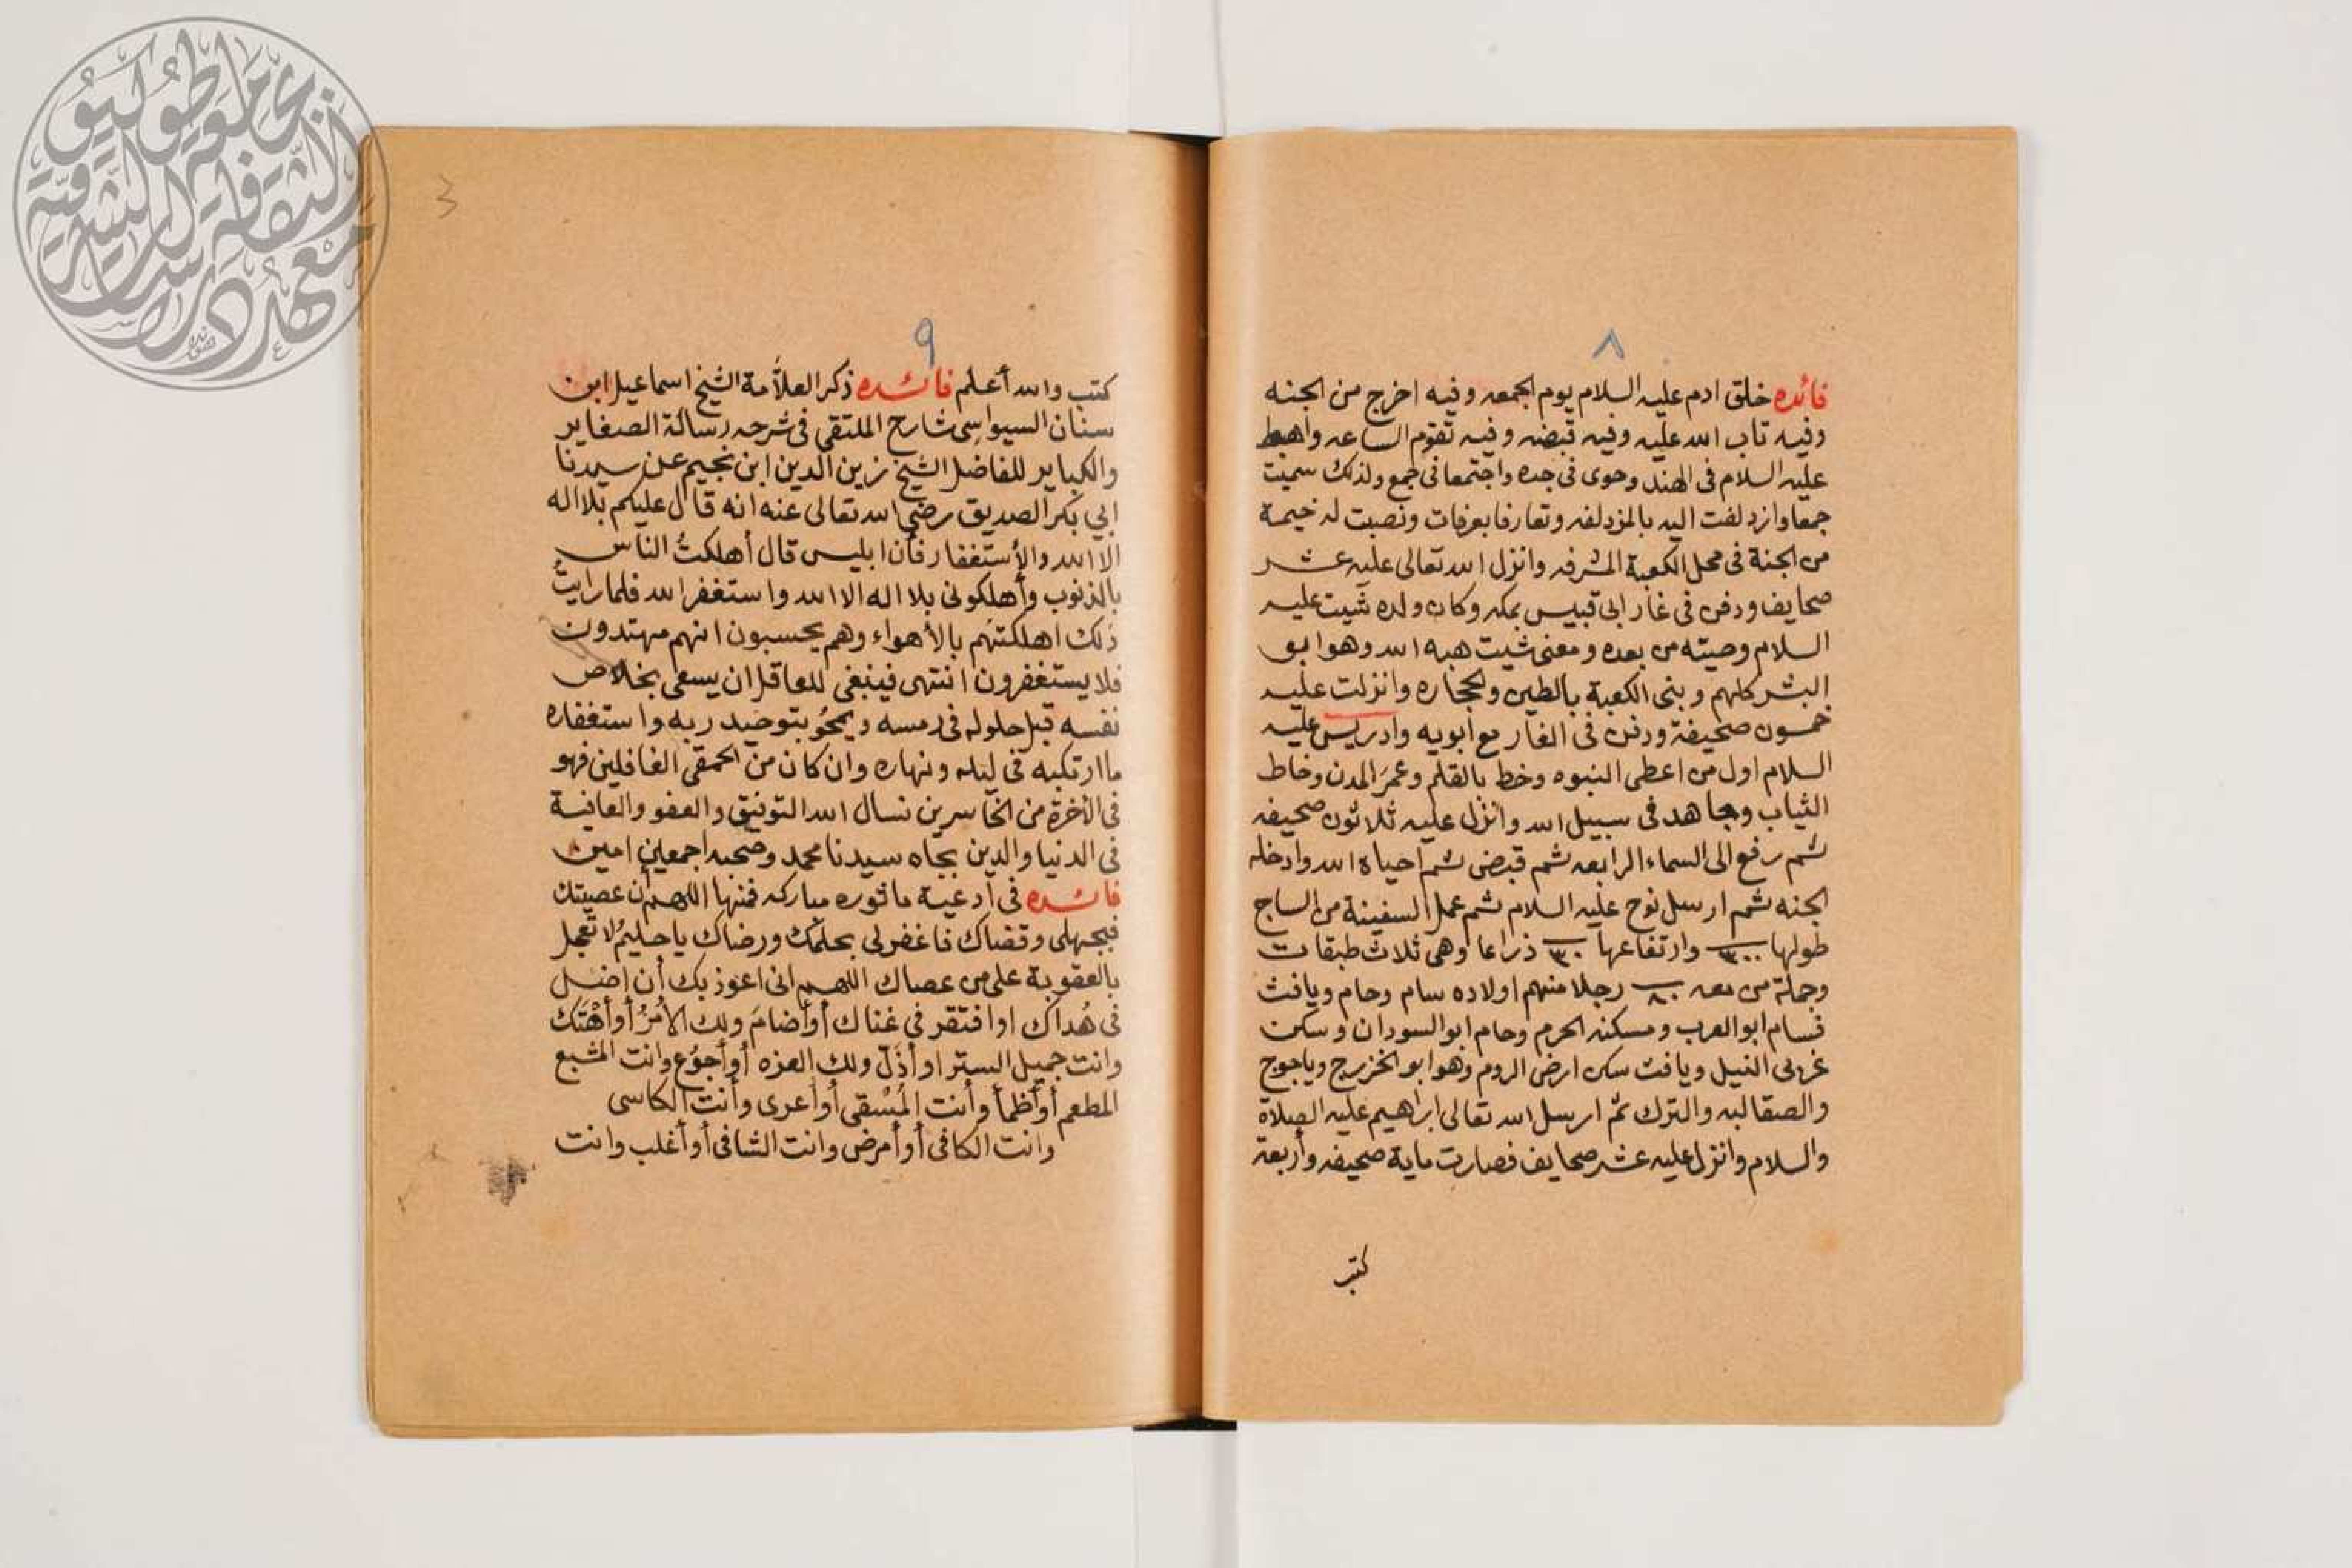 ٨
فائده خلق ادم عليه السلام يوم الجمعه وفيه اخرج من الجنه
وفيه تاب الله عليه وفيه قبضه وفيه تقوم الساعه واهبط
عليه السلام فى الهند وحوى فى جده واجتمعا فى جمع ولذلك سميت
جمعا وازدلفت اليه بالمزدلفه وتعارفا بعرفات ونصبت له خيمة
من الجنة فى محل الكعبة المشرفه وانزل الله تعالى عليه عشر
صحايف ودفن فى غار ابى قبيس بمكه وكان ولده شيت عليه
السلام وصيته من بعده ومعنى شيت هبه الله وهو ابو
البشر كلهم وبنى الكعبة بالطين والحجاره وانزلت عليه
خمسون صحيفة ودفن فى الغار مع ابويه وادريس عليه
السلام اول من اعطى النبوه وخط بالقلم وعمر المدن وخاط
الثياب وجاهد فى سبيل الله وانزل عليه ثلاثون صحيفه
ثم رفع الى السماء الرابعه ثم قبض ثم احياه الله وادخله
الجنه ثم ارسل نوح عليه السلام ثم عمل السفينة من الساج
طولها ٣٠٠ وارتفاعها ٣٠ ذراعا وهى ثلاث طبقات
وجملة من معه ٨٠ رجلا منهم اولاده سام وحام ويافث
فسام ابو العرب ومسكنه الحرم وحام ابو السودان وسكن
غربى النيل ويافث سكن ارض الروم وهو ابو الخزرج وياجوج
والصقالبه والترك ثم ارسل الله تعالى ابراهيم عليه الصلاة
والسلام وانزل عليه عشر صحايف فصارت ماية صحيفه وأربعة
كتب
٩
كتب والله أعلم فائده ذكر العلاَّمة الشيخ اسماعيل ابن
سنان السيواسِى شارح الملتقى فى شرحه رسالة الصغاير
والكباير للفاضل الشيخ زين الدين ابن نجيم عن سيدنا
ابي بكر الصديق رضي الله تعالى عنه انه قال عليكم بلا اله
الا الله والأستغفار فأن ابليس قال أهلكتُ الناس
بالذنوب وأهلكونى بلا اله الا الله واستغفر الله فلما رايتُ
ذلك اهلكتهم بالأهواء وهم يحسبون انهم مهتدون
فلا يستغفرون انتهى فينبغى للعاقل ان يسعى بخلاص
نفسه قبل حلوله فى رمسه ويمحُو بتوحيد ربه واستغفاره
ما ارتكبه فى ليله ونهاره وان كان من الحمقى الغافلين فهو
فى الأخرة من الخاسرين نسال الله التوفيق والعفو والعافية
فى الدنيا والدين بجاه سيدنا محمد وصحبه اجمعين امين
فائده فى أدعية ماثوره مباركه فمنها اللهم أن عصيتك
فبجهلى وقضاك فاغفر لى بحلمك ورضاك يا حليمُ لا تعجل
بالعقوبة على من عصاك اللهم انى اعوذ بك أن اضل
فى هُداك او افتقر في غناك أو أضامَ ولك الأمُرُ أو أهْتَك
وانت جميل الستر او أذَلّ ولك العزه أو أجوُع وانت المشبع
المطعم أو أظمأ وأنت المُسْقى أو أعرى وأنت الكاسى
وانت الكافى أو أمرض وانت الشافى أو أغلب وانت